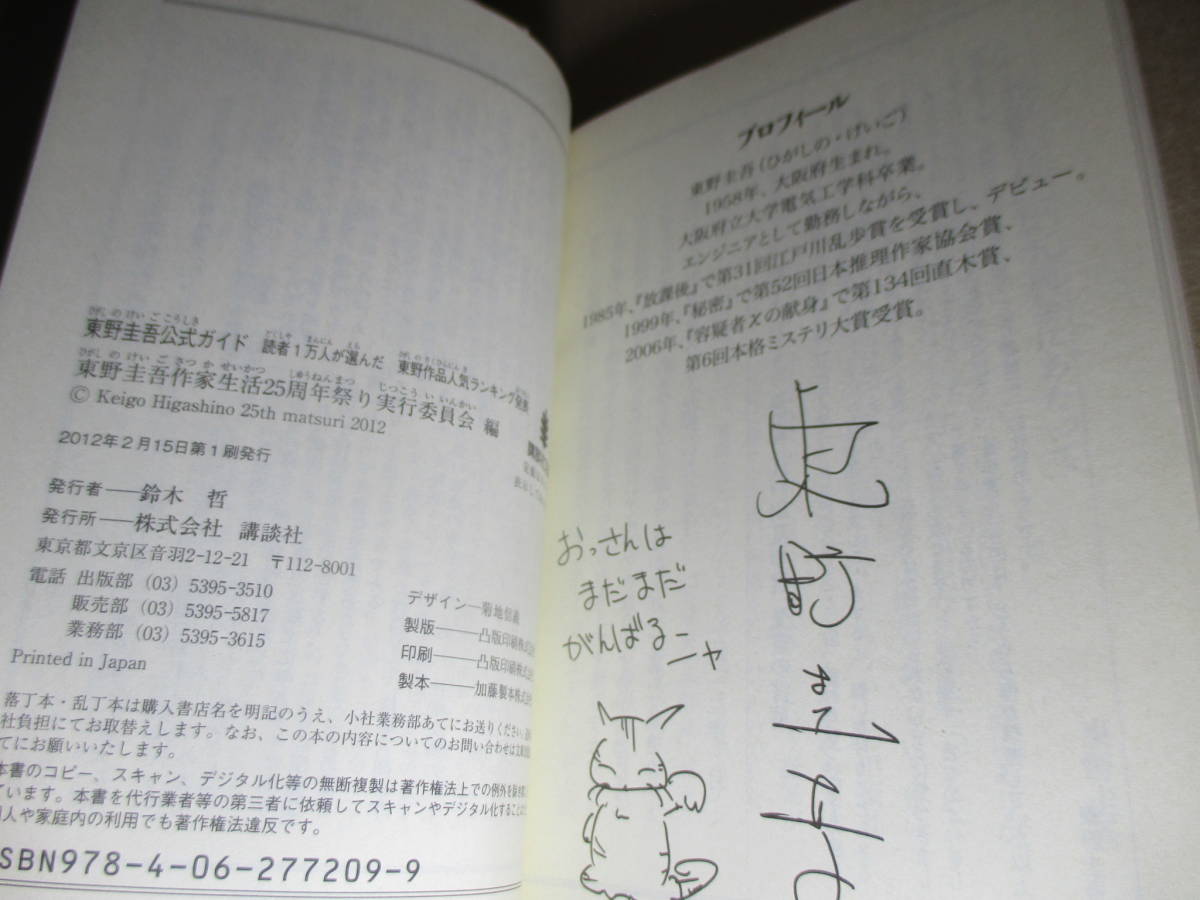 東野圭吾公式ガイド 読者1万人が選んだ 東野作品人気ランキング発表
東野圭吾作家生活25周年祭り実行委員会 編
© Keigo Higashino 25th matsuri 2012
2012年2月15日第1刷発行
発行者——鈴木 哲
発行所——株式会社 講談社
東京都文京区音羽2-12-21 〒112-8001
電話 出版部 (03) 5395-3510
販売部 (03) 5395-5817
業務部 (03) 5395-3615
Printed in Japan
デザイン—菊地信義
製版——凸版印刷株式会
印刷——凸版印刷株式会
製本——加藤製本株式会
落丁本・乱丁本は購入書店名を明記のうえ、小社業務部あてにお送りください。
社負担にてお取替えします。なお、この本の内容についてのお問い合わせは
てにお願いいたします。
本書のコピー、スキャン、デジタル化等の無断複製は著作権法上での例外を除き
ています。本書を代行業者等の第三者に依頼してスキャンやデジタル化すること
個人や家庭内の利用でも著作権法違反です。
ISBN978-4-06-277209-9
プロフィール
東野圭吾(ひがしの・けいご)
1958年、大阪府生まれ。
大阪府立大学電気工学科卒業。
エンジニアとして勤務しながら、
1985年、『放課後』で第31回江戸川乱歩賞を受賞し、デビュー。
1999年、『秘密』で第52回日本推理作家協会賞、
2006年、『容疑者Xの献身』で第134回直木賞、
第6回本格ミステリ大賞受賞。
おっさんは
まだまだ
がんばるーニャ